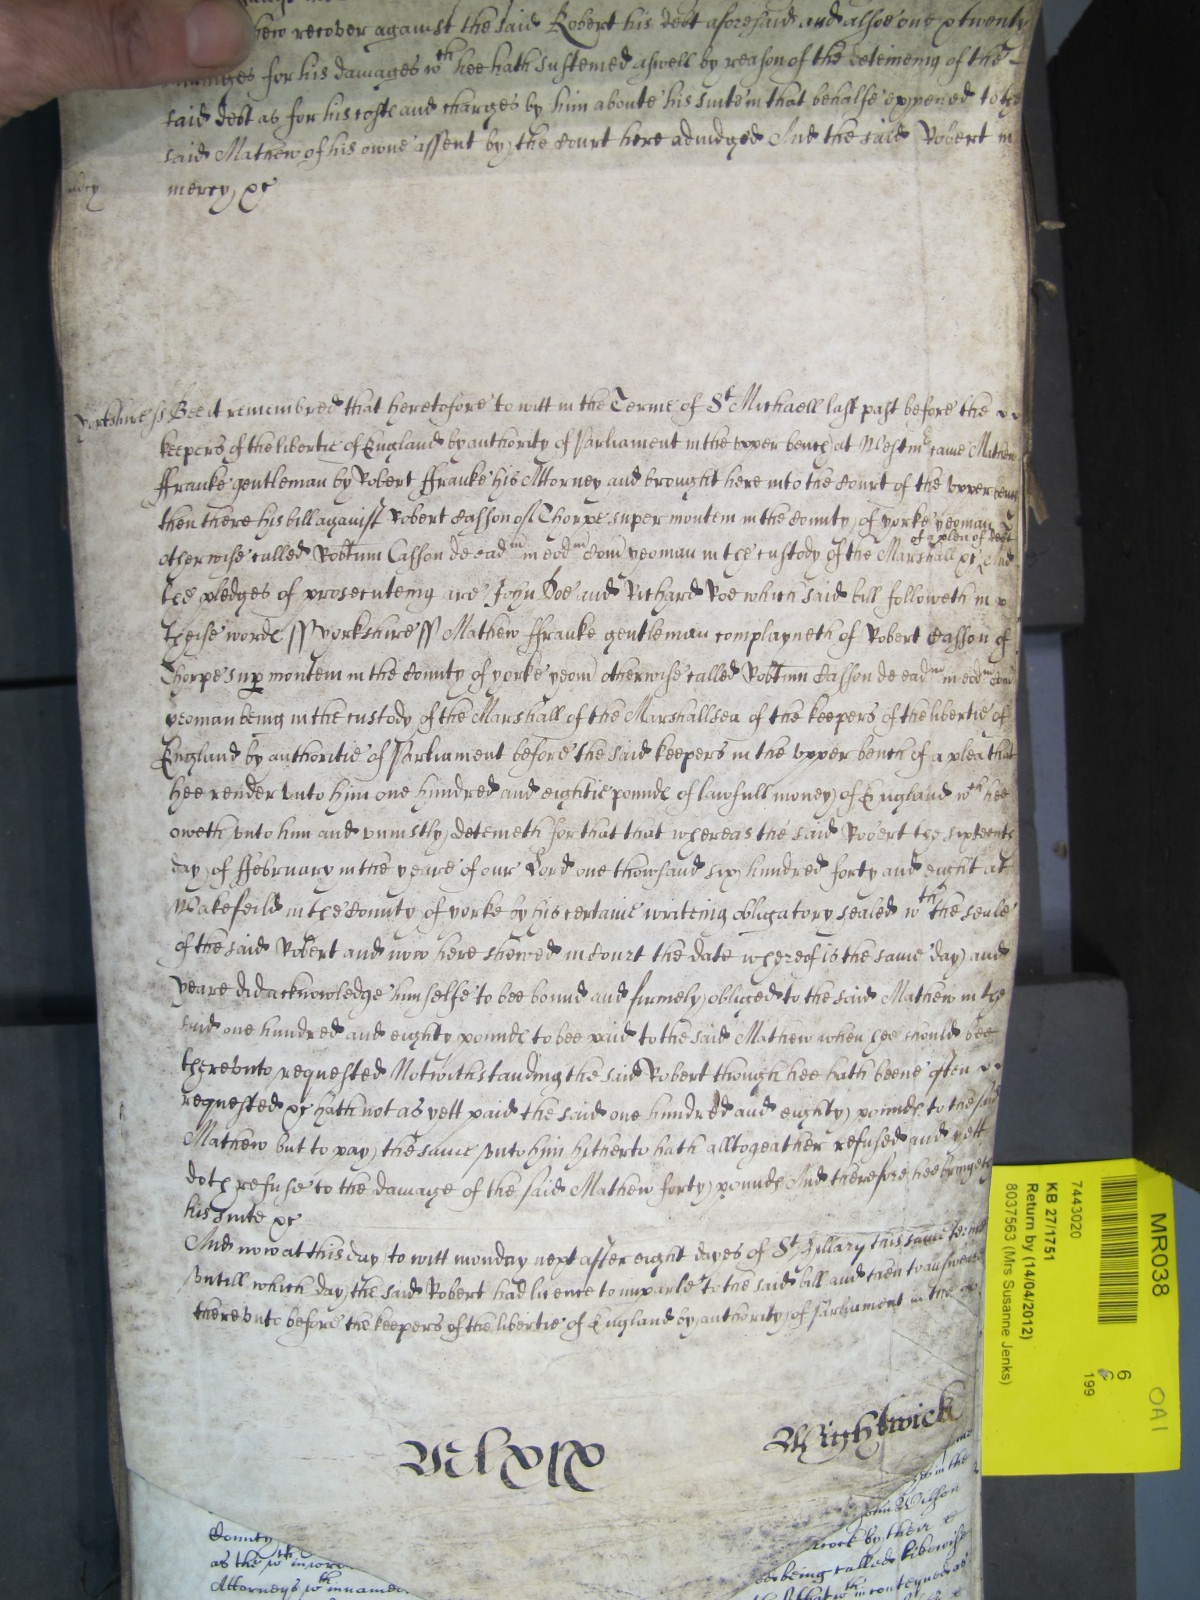 hew recover against the said Robert his debt aforesaid and alsoe one & twenty
for his damages wth hee hath susteined aswell by reason of the deteineing of the
said debt as for his costs and charges by him aboute his suite in that behalfe expended to the
said Mathew of his owne assent by the Court here adiudged And the said Robert in
mercy &c
Yorkshire ss Bee it remembred that heretofore to witt in the Terme of St Michaell last past before the
keepers of the libertie of England by authority of Parliament in the upper bench at Westmr came Mathew
ffranke gentleman by Robert ffranke his Attorney and brought here into the Court of the upper bench
then there his bill against Robert Casson of Thorpe super montem in the County of yorke yeoman
otherwise called Robtum Casson de eadm in eodm Com yeoman in the custody of the Marshall &c of a plea of debt And
the pledges of prosecuteing are John Doe and Richard Roe which said bill followeth in
theise words ss yorkshire ss Mathew ffranke gentleman complayneth of Robert Casson of
Thorpe sup montem in the County of yorke yeom otherwise called Robtum Casson de eadm in eodm Com
yeoman being in the custody of the Marshall of the Marshallsea of the keepers of the libertie of
England by authoritie of Parliament before the said keepers in the upper bench of a plea that
hee render unto him one hundred and eightie pounds of lawfull money of England wch hee
oweth unto him and uniustly deteineth for that that whereas the said Robert the sixteenth
day of ffebruary in the yeare of our Lord one thowsand six hundred forty and eight at
Wakefeild in the County of yorke by his certaine writing obligatory sealed wth the seale
of the said Robert and now here shewed in Court the date whereof is the same day and
yeare did acknowledge himselfe to bee bound and firmely obliged to the said Mathew in the
said one hundred and eighty pounds to bee paid to the said Mathew when hee should bee
thereunto requested Notwithstanding the said Robert though hee hath beene often
requested &c hath not as yett paid the said one hundred and eighty pounds to the said
Mathew but to pay the same unto him hitherto hath alltogeather refused and yett
doth refuse to the damage of the said Mathew forty pounds And therefore hee bringeth
his suite &c
And now at this day to witt monday next after eight dayes of St Hillary this same terme
untill which day the said Robert had licence to imparle to the said bill and then to answeare
thereunto before the keepers of the libertie of England by authority of Parliament in the
Wightwick
County
as the wth in
Attorneys wth innamed
in the
Wilson
by their
being called likewise
that wth in conteyned as
MR038
7443020
KB 27/1751
Return by (14/04/2012)
8037563 (Mrs Susanne Jenks)
6
6
199
OA1